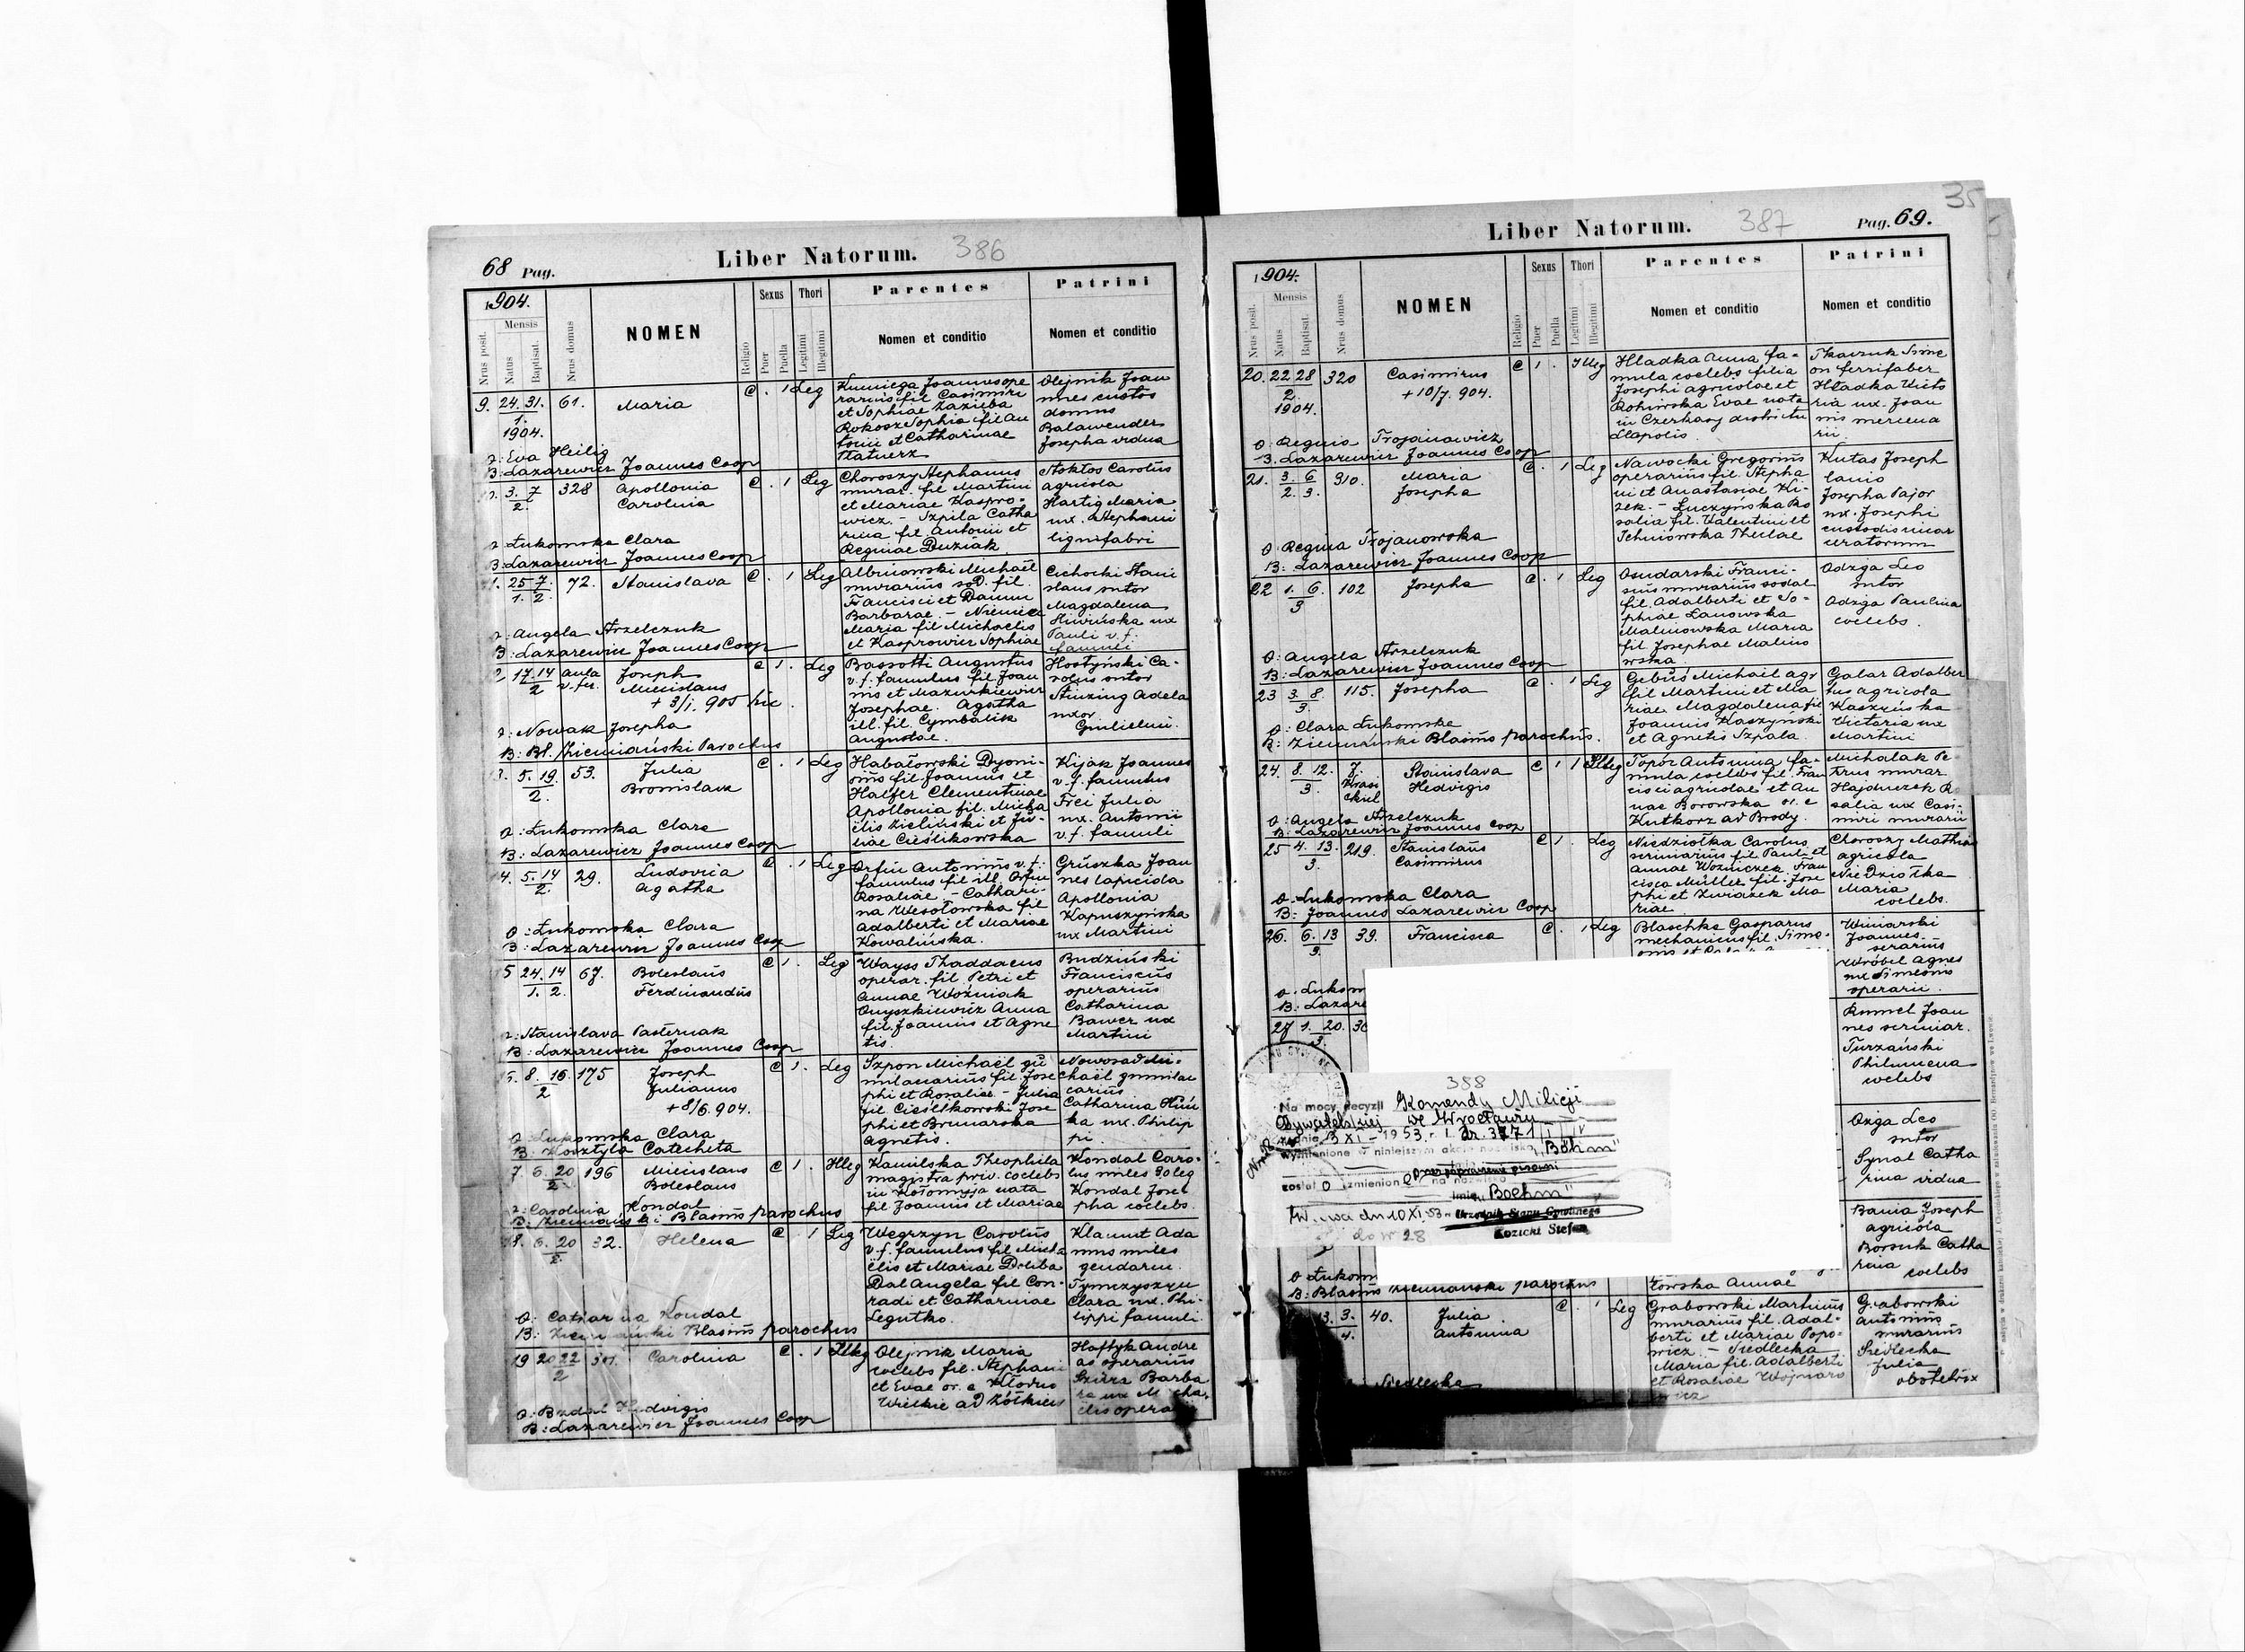 68 Pag.
Liber Natorum.
386
1904.
Nrus posit.
Mensis
Natus
Baptisat.
Nrus domus
NOMEN
Religio
Sexus
Puer
Puella
Thori
Legitimi
Illegitimi
Parentes
Nomen et conditio
Patrini
Nomen et conditio
9. 24. 31. 61. Maria C . 1 Leg
1.
1904.
Kuniega Joannes ope
rarius fil Casimiri
et Sophiae Zazięba
Rokosz Sophia fil An
tonii et Catharinae
Olejnik Joan
nes custos
domus
Balawender
Josepha vidua
O: Eva Heilig
B: Lazarewicz Joannes Coop
3. 7 328 Apollonia C . 1 Leg
2. Carolina
Choroszy Stephanus
murar. fil Martini
et Mariae Kaspro-
wicz. - Szpila Catha
rina fil Antonii et
Reginae Duziak
Stoktos Carolus
agricola
Hartig Maria
ux. Stephani
lignifabri
O: Łukomska Clara
B: Lazarewicz Joannes Coop
25 7. 72. Stanislava C . 1 Leg
1. 2.
Albinowski Michaël
murarius sod. fil.
Francisci et
Barbarae. - Niemiec
Maria fil Michaelis
et Kasprowicz Sophiae
Cichocki Stani
slaus sutor
Magdalena
ux
Pauli v.f.
famuli
O: Angela Strzelczuk
B: Lazarewicz Joannes Coop
17. 14 aula Joseph C 1 . Leg
2 Miecislaus
+ 3/1. 905 hic
Bassotti Augustus
v.f. famulus fil Joan
nis et Mazurkiewicz
Josephae. Agatha
ill. fil. Cymbalik
Augustae.
Hostyński Ca-
rolus sutor
Stinzing Adela
uxor
Guilielmi.
O: Nowak Josepha
B: Bl. Ziemiański Parochus
5. 19. 53. Julia C . 1 Leg
2. Bronislava
Habałowski Dyoni-
sius fil Joannis et
Halfer Clementinae
Apollonia fil. Micha
ëlis Zieliński et Ju-
liae Cieślikowska
Kijak Joannes
v.f. famulus
Frei Julia
ux. Antonii
v.f. famuli
O: Łukomska Clara
B: Lazarewicz Joannes Coop
4. 5. 14 29. Ludovica C . 1 Leg
2. Agatha
Orfin Antonius v.f.
famulus fil ill. Orfin
Rosaliae - Cathari-
na Wesołowska fil
Adalberti et Mariae
Kowalińska.
Gruszka Joan
nes lapicida
Apollonia
Kapuszyńska
ux Martini
O: Łukomska Clara
B: Lazarewicz Joannes Coop
5 24. 14 67. Boleslaus C 1 . Leg
1. 2. Ferdinandus
Wayss Thaddaeus
operar. fil Petri et
Annae Woźniak
Onyszkiewicz Anna
fil Joannis et Agne
tis.
Budziński
Franciscus
operarius
Catharina
Bawer ux
Martini
O: Stanislava Pasternak
B: Lazarewicz Joannes Coop
8. 16. 175 Joseph C 1. Leg
2 Julianus
+8/6.904.
Szpon Michaël gu
minanarius fil. Jose
phi et Rosaliae - Julia
fil Cieślikowski Jose
phi et Brunarska
Agnetis.
Nowosad Mi-
chaël
Catharina
ka ux. Philip
pi.
O: Łukomska Clara
B: Kosztyła Catecheta
7. 6. 20 196 Miecislaus C 1. Illeg
2 Boleslaus
Kamilska Theophila
magistra priv. coelebs
in Kołomyja nata
fil Joannis et Mariae
Kondal Caro-
lus miles 30 leg
Kondal Jose
pha coelebs.
O: Carolina Kondal
B: Ziemiański Blasius parochus
6. 20 32. Helena C . 1 Leg
2.
Węgrzyn Carolus
v.f. famulus fil Micha
ëlis et Mariae Doliba
Dal Angela fil Con-
radi et Catharinae
Legutko.
Klamut Ada
mus miles
gendarm.
Tymczyszyn
Clara ux. Phi-
lippi famuli.
O: Catharina Kondal
B: Ziemiański Blasius parochus
19 20 22 301. Carolina C . 1 Illeg
2
Olejnik Maria
coelebs fil. Stephani
et Evae or. e
Wielkie ad Żółkiew
Haftyk Andre
as operarius
Barba
ra ux Micha
ëlis opera
O: Budal Hedvigis
B: Lazarewicz Joannes Coop
Liber Natorum.
387
Pag. 69.
35
1904.
Nrus posit.
Mensis
Natus
Baptisat.
Nrus domus
NOMEN
Religio
Sexus
Puer
Puella
Thori
Legitimi
Illegitimi
Parentes
Nomen et conditio
Patrini
Nomen et conditio
20. 22 28 320 Casimirus C 1 . Illeg
2. + 10/7. 904.
1904.
Hladka Anna fa-
mula coelebs filia
Josephi agricolae et
Rohińska Evae nata
in Czerkasy districtu
Llapolis.
Tkaczuk Sime
on ferrifaber
Hladka Victo
ria ux. Joan
nis mercena
rii.
O: Regina Trojanowicz
B. Lazarewicz Joannes Coop
21. 3. 6 310. Maria C . 1 Leg
2. 3. Josepha
Nawocki Gregorius
operarius fil. Stepha
ni et Anastasiae Ki-
zek. - Łuczyńska Ro
salia fil. Valentini et
Tchniowska Theclae
Kutas Joseph
lanio
Josepha Pajor
ux. Josephi
custodis incar
ceratorum
O. Regina Trojanowska
B: Lazarewicz Joannes Coop
22 1. 6. 102 Josepha C . 1 Leg
3
Osudarski Franci-
scus murarius sodal
fil. Adalberti et So-
phiae Łanowska
Malinowska Maria
fil Josephae Malino
wska
Odzga Leo
sutor
Odzga Paulina
coelebs.
O: Angela Strzelczuk
B: Lazarewicz Joannes Coop
23 3. 8. 115. Josepha C . 1 Leg
3.
Gebuś Michaël agr
fil Martini et Ma
riae. Magdalena fil
Joannis Kaszyński
et Agnetis Szpala.
Galar Adalber
tus agricola
Kaszyńska
Victoria ux
Martini
O: Clara Łukomska
B: Ziemiański Blasius parochus.
24. 8. 12. 7. Stanislava C 1 1 Illeg
3. Hedvigis
Topór Antonina, fa-
mula coelebs fil. Fran
cisci agricolae et An
nae Borowska or. e
Kutkorz ad Brody.
Michalak Pe
trus murar
Hajduczek Ro
salia ux Casi-
miri murarii
O: Angela Strzelczuk
B: Lazarewicz Joannes Coop
25 4. 13. 219. Stanislaus C 1 . Leg
3. Casimirus
Niedziołka Carolus
scriniarius fil Pauli et
Annae Woźniczek Fran
cisca Müller fil. Jose
phi et Związek Ma
riae.
Choroszy Mathias
agricola
Niedziołka
Maria
coelebs.
O. Łukomska Clara
B: Joannes Lazarewicz Coop
26. 6. 13 39. Francisca C . 1 Leg
3.
Blaschke Gasparus
mechanicus fil. Simo-
Winiarski
Joannes
serarius
Wróbel Agnes
ux Simeonis
operarii.
O. Łukom
B: Lazare
27 1. 20. 30
3.
Rumel Joan
nes scriniar.
Turzański
Philumena
coelebs
388
Na mocy decyzji Komendy Milicji
Obywatelskiej we Wrocławiu
z dnia 3 XI - 1953 r. L. dz. 3771
wymienione w niniejszym akcie nazwisko "Böhm"
został o zmienion e przez poprawienie pisowni
na nazwisko
imię "Boehm"
W-wa dn 10 XI. 53 r. Urzędnik Stanu Cywilnego
do W 28 Kozicki Stefan
Ozga Leo
sutor
Synal Catha
rina vidua
Bania Joseph
agricola
Borsuk Catha
rina coelebs
O Łukom
B: Blasius Ziemiański parochus
towska Annae
13. 3. 40. Julia C . 1 Leg
4. Antonina
Grabowski Martinus
murarius fil. Adal-
berti et Mariae Popo-
wicz. - Siedlecka
Maria fil. Adalberti
et Rosaliae Wojnaro
wicz
Grabowski
Antonius
murarius
Siedlecka
Julia
obstetrix
Siedlecka